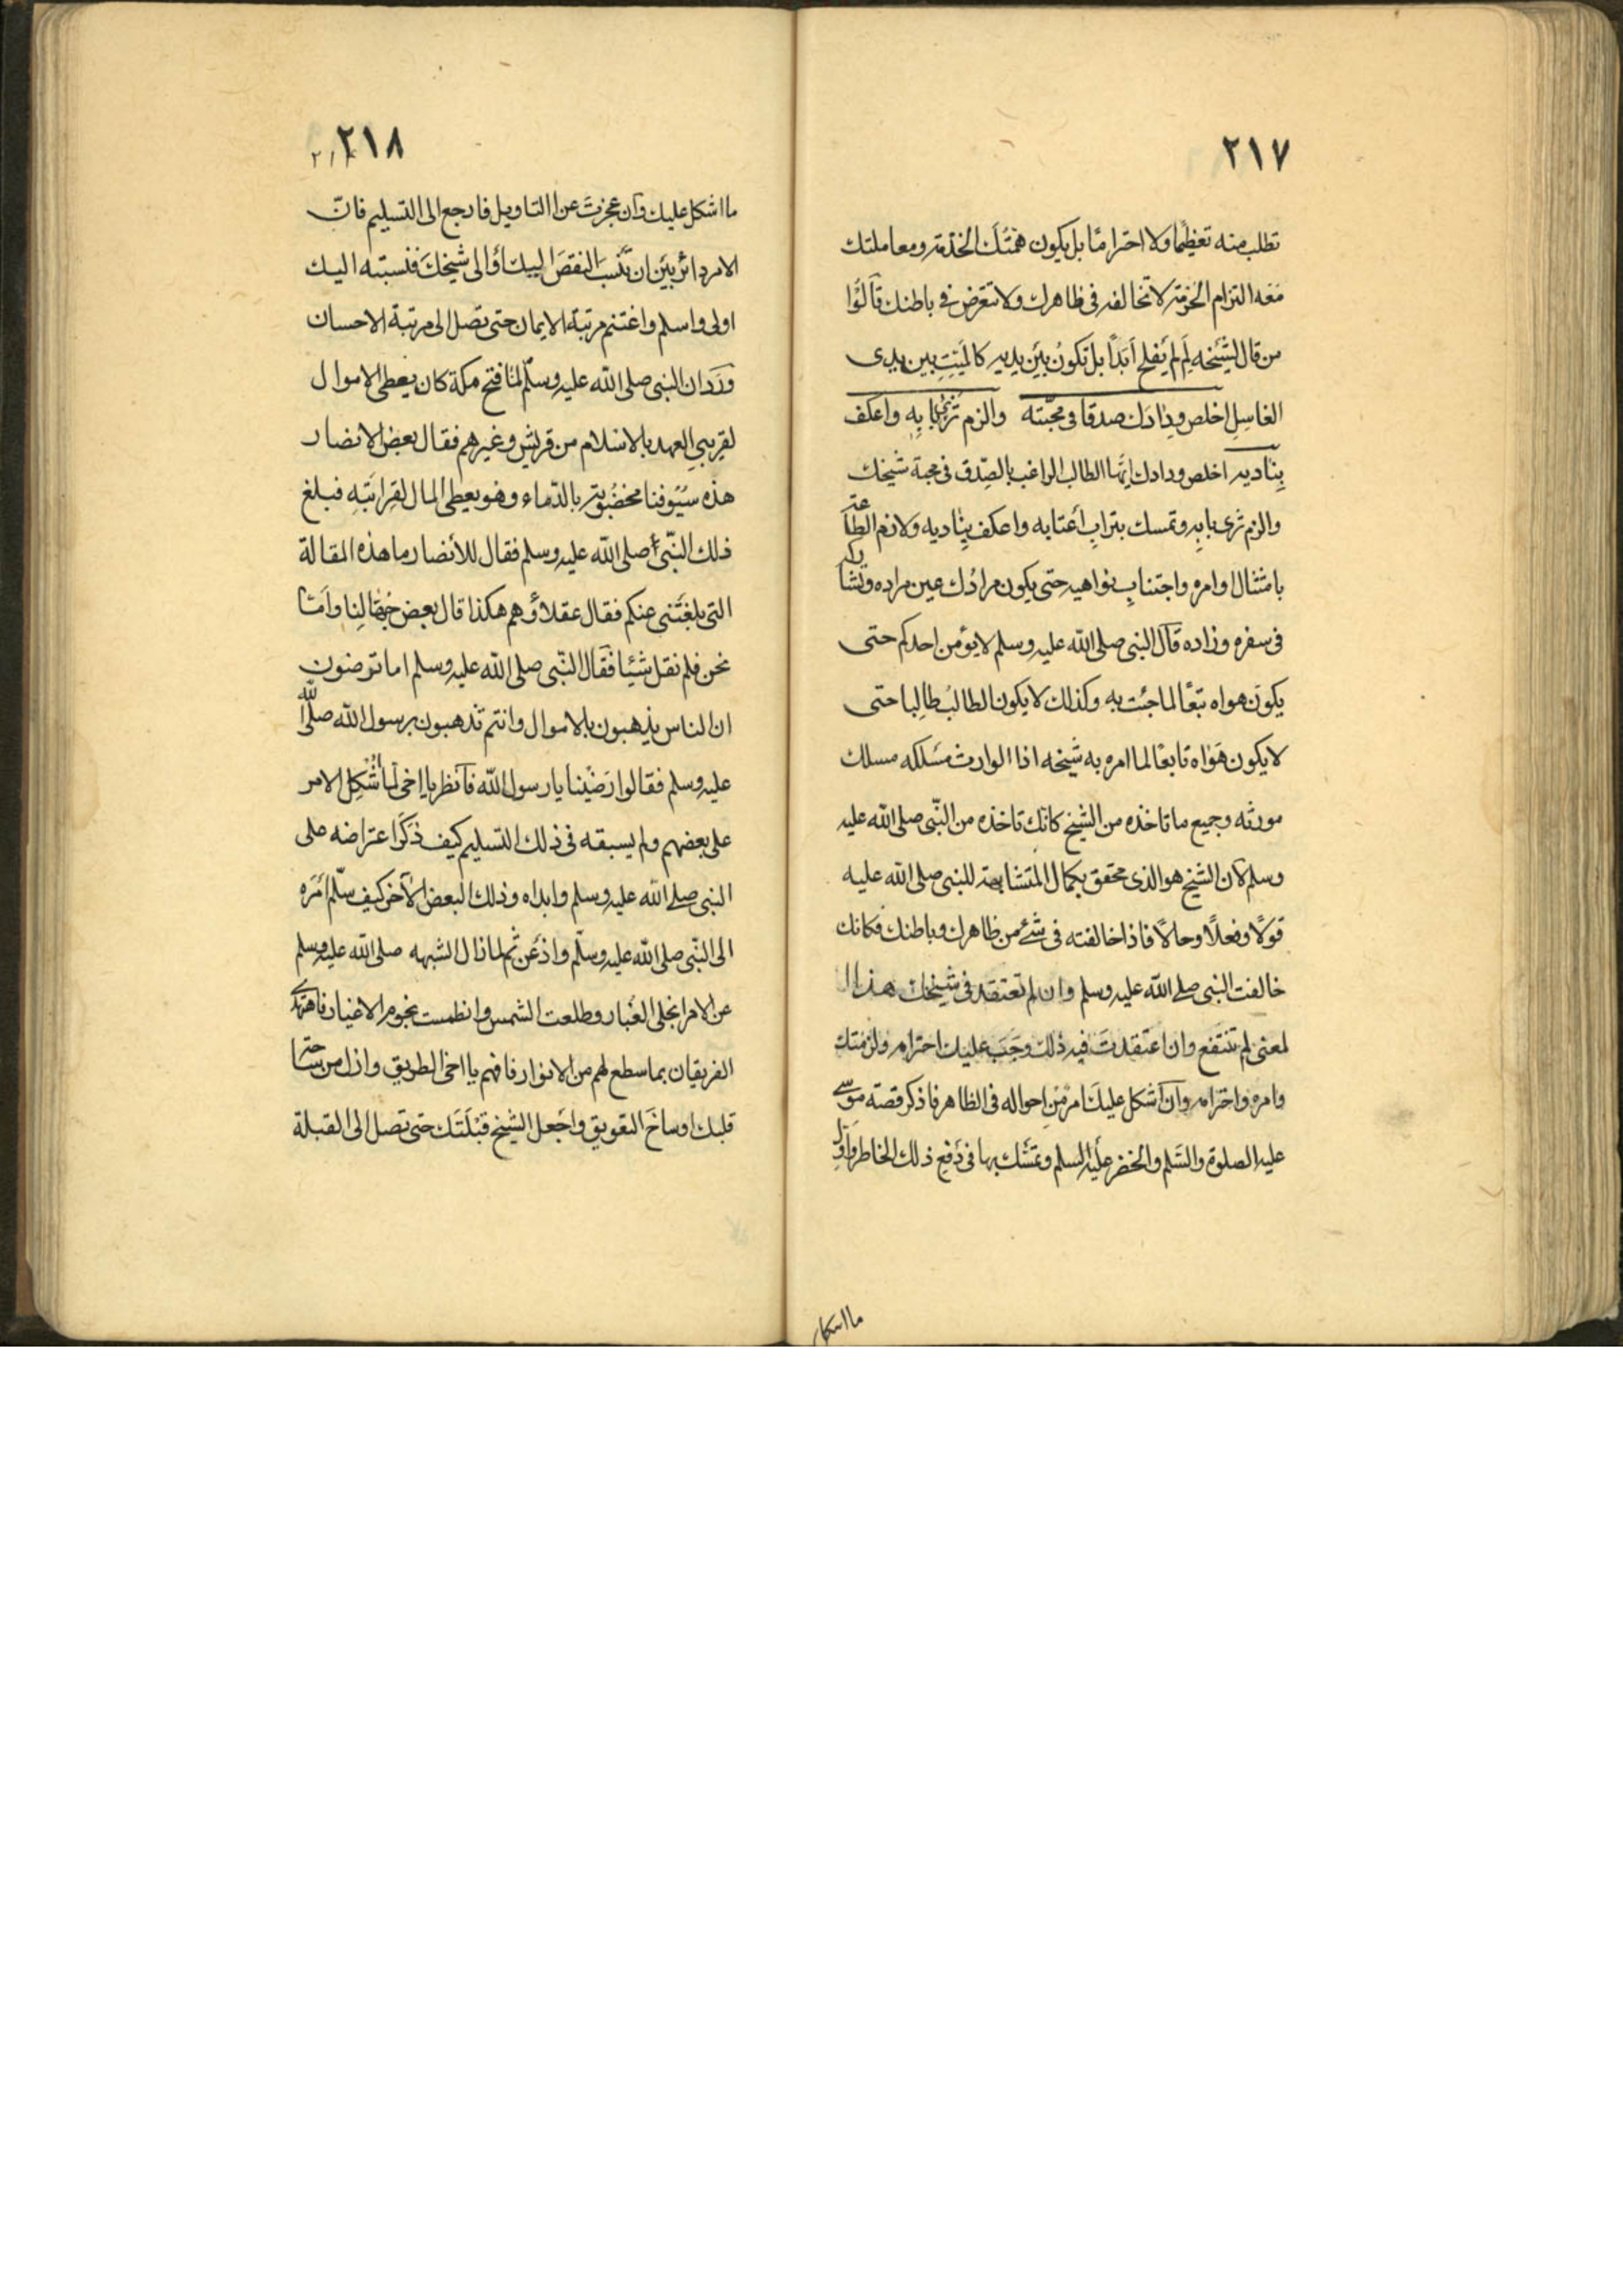 ٢١٧
تطلب منه تعظيما ولا احتراما بل يكون همتك الخدمة ومعاملتك
معه التزام الحرمة لا تخالفه في ظاهرك ولا تعترض في باطنك قالوا
من قال لشيخه لم لم يفلح ابدا بل تكون بين يديه كالميت بين يدي
الغاسل اخلص ودادك صدقا في محبته والزم ثرى بابه واعكف
بناديه اخلص ودادك ايها الطالب الراغب بالصدق في محبة شيخك
والزم ثرى بابه وتمسك بتراب أعتابه واعكف بناديه ولازم الطاعة
بامتثال اوامره واجتناب نواهيه حتى يكون مرادك عين مراده وتشاركه
في سفره وزاده قال النبي صلى الله عليه وسلم لا يؤمن احدكم حتى
يكون هواه تبعا لما جئت به وكذلك لا يكون الطالب طالبا حتى
لا يكون هواه تابعا لما امره به شيخه اذا الوارث مسلكه مسلك
مورثه وجميع ما تاخذه من الشيخ كانك تاخذه من النبي صلى الله عليه
وسلم لان الشيخ هو الذي محقق بكمال المتشابهة للنبي صلى الله عليه
قولا وفعلا وحالا فاذا خالفته في شئ من ظاهرك وباطنك فكانك
خالفت النبي صلى الله عليه وسلم وان لم تعتقد في شيخك هذا ال
لمعنى لم تنتفع وان اعتقدت فيه ذلك وجب عليك احترامه ولزمتك
وامره واحترامه وان اشكل عليك امر من احواله في الظاهر فاذكر قصة موسى
عليه الصلوة والسلم والخضر عليه السلم وتمسك بها في دفع ذلك الخاطر واول
ما اشكل
٢١٨
ما اشكل عليك وان عجزت عن التاويل فارجع الى التسليم فان
الامر دائر بين ان تنسب النقص اليك أو الى شيخك فنسبته اليك
اولى واسلم واغتنم مرتبة الايمان حتى تصل الى مرتبة الاحسان
ورد ان النبي صلى الله عليه وسلم لما فتح مكة كان يعطي الاموال
لقريبي العهد بالاسلام من قريش وغيرهم فقال بعض الانصار
هذه سيوفنا مخضوبة بالدماء وهو يعطي المال لقرابته فبلغ
ذلك النبي صلى الله عليه وسلم فقال للأنصار ما هذه المقالة
التي بلغتني عنكم فقال عقلاؤهم هكذا قال بعض جهالنا وأما
نحن فلم نقل شيئا فقال النبي صلى الله عليه وسلم اما ترضون
ان الناس يذهبون بالاموال وانتم تذهبون برسول الله صلى الله
عليه وسلم فقالوا رضينا يا رسول الله فانظر يا اخي لما أشكل الامر
على بعضهم ولم يسبقه في ذلك التسليم كيف ذكر اعتراضه على
النبي صلى الله عليه وسلم وابداه وذلك البعض الآخر كيف سلم أمره
الى النبي صلى الله عليه وسلم واذعن ثم لما زال الشبهه صلى الله عليه وسلم
عن الامر انجلى الغبار وطلعت الشمس وانطمست نجوم الاغيار فاهتدى
الفريقان بما سطع لهم من الانوار فافهم يا اخي الطريق وازل من
قلبك اوساخ التعويق واجعل الشيخ قبلتك حتى تصل الى القبلة